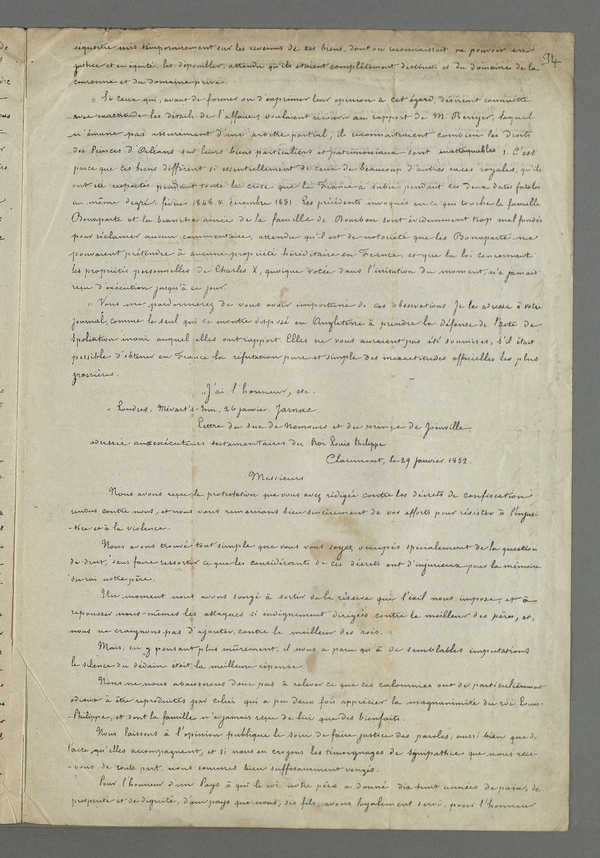 94
séquestre mis temporairement sur les revenus de ces biens, dont on reconnaissait ne pouvoir en
justice et en équité, les dépouiller, attendu qu'ils étaient complètement distincts et du domaine de la
couronne et du domaine privé.
" Si ceux qui, avant de former ou d'exprimer leur opinion à cet égard, désirent connaître
avec les détails de l'affaire, voulaient recourir au rapport de M. Berryer, lequel
n'émane pas assurément d'un arbitre partial, ils reconnaitront combien les droits
des Princes d'Orléans sur leurs biens particuliers et patrimoniaux sont inattaquables. C'est
parce que ces biens diffèrent si essentiellement de ceux de beaucoup d'autres races royales, qu'ils
ont été respectés pendant toute la crise que la France a subie pendant ces deux dates fatales
au même degré: février 1848 & décembre 1851. Les précédents invoqués en ce qui touche la famille
Bonaparte et la branche ainée de la famille de Bourbon sont évidemment trop mal fondés
pour réclamer aucun commentaire, attendu qu'il est de notoriété que les Bonaparte ne
pouvaient prétendre à aucune propriété héréditaire en France, et que la loi concernant
les propriétés personnelles de Charles X, quoique votée dans l'irritation du moment, n'a jamais
reçu d'exécution jusqu'à ce jour.
" Vous me pardonnerez de vous avoir importuné de ces observations. Je les adresse à votre
journal, comme le seul qui se montre disposé en Angleterre à prendre la défense de l'acte de
spoliation inouï auquel elles ont rapport. Elles ne vous auraient pas été soumises, s'il était
possible d'obtenir en France la réfutation pure et simple des inexactitudes officielles les plus
grossières.
" J'ai l'honneur, etc.
" Londres, Mivart's-Inn, 26 janvier. Jarnac.
Lettre du duc de Nemours et du prince de Joinville,
adressée aux exécuteurs testamentaires du Roi Louis Philippe
Claremont, le 29 janvier 1852.
Messieurs
Nous avons reçu la protestation que vous avez rédigée contre les décrets de confiscation
rendus contre nous, et nous vous remercions bien sincèrement de vos efforts pour résister à l'injus-
-tice et à la violence.
Nous avons trouvé tout simple que vous vous soyez occupés spécialement de la question
de droit, sans faire ressortir ce que les considérants de ces décrets ont d'injurieux pour la mémoire
du roi notre père.
Un moment nous avons songé à sortir de la réserve que l'exil nous impose, et à
repousser nous-mêmes les attaques si indignement dirigées contre le meilleur des pères, et,
nous ne craignons pas d'ajouter, contre le meilleur des rois.
Mais, en y pensant plus mûrement, il nous a paru qu'à de semblables imputations
le silence du dédain était la meilleure réponse.
Nous ne nous abaisserons donc pas à relever ce que ces calomnies ont de particulièrement
odieux à être reproduites par celui qui a pu deux fois apprécier la magnanimité du roi Louis-
-Philippe, et dont la famille n'a jamais reçu de lui que des bienfaits.
Nous laissons à l'opinion publique le soin de faire justice des paroles, aussi bien que de
l'acte qu'elles accompagnent, et si nous en croyons les témoignages de sympathie que nous rece-
-vons de toute part, nous sommes bien suffisamment vengés.
Pour l'honneur d'un Pays à qui le roi notre père a donné dix huit années de paix, de
prospérité et de dignité, d'un pays que nous, ses fils, avons loyalement servi, pour l'honneur